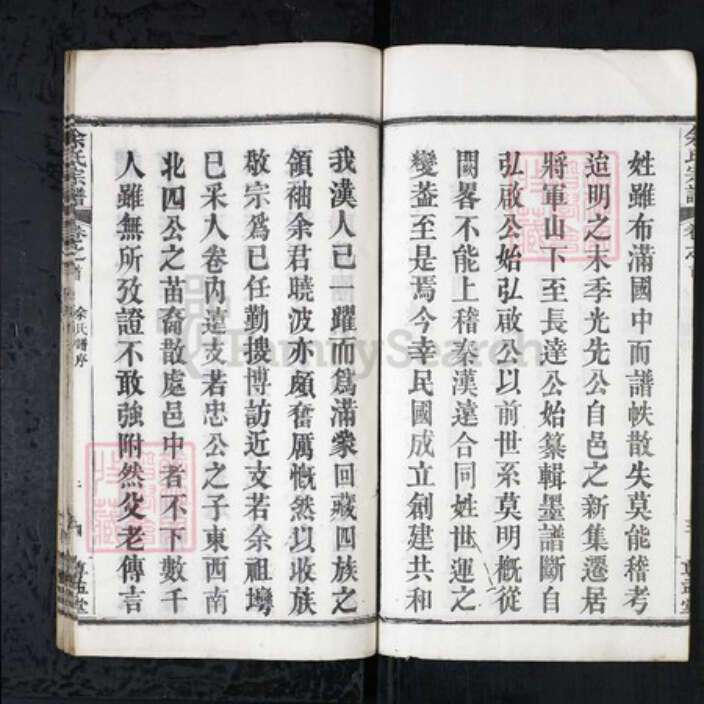 姓雖布滿國中而譜帙散失莫能稽考
迨明之末季光先公自邑之新集遷居
將軍山下至長達公始纂輯墨譜斷自
弘啟公始弘啟公以前世系莫明概從
闕畧不能上稽秦漢達合同姓世運之
變益至是焉今幸民國成立創建共和
我漢人已一躍而為滿蒙回藏四族之
領袖余君曉波亦頗奮厲慨然以收族
敬宗為已任勤搜博訪近支若余祖塆
已采人卷內達支若忠公之子東西南
北四公之苗裔散處邑中者不下數千
人雖無所攷證不敢強附然父老傳言
余氏宗譜
卷之首
余氏譜序
FamilySearch